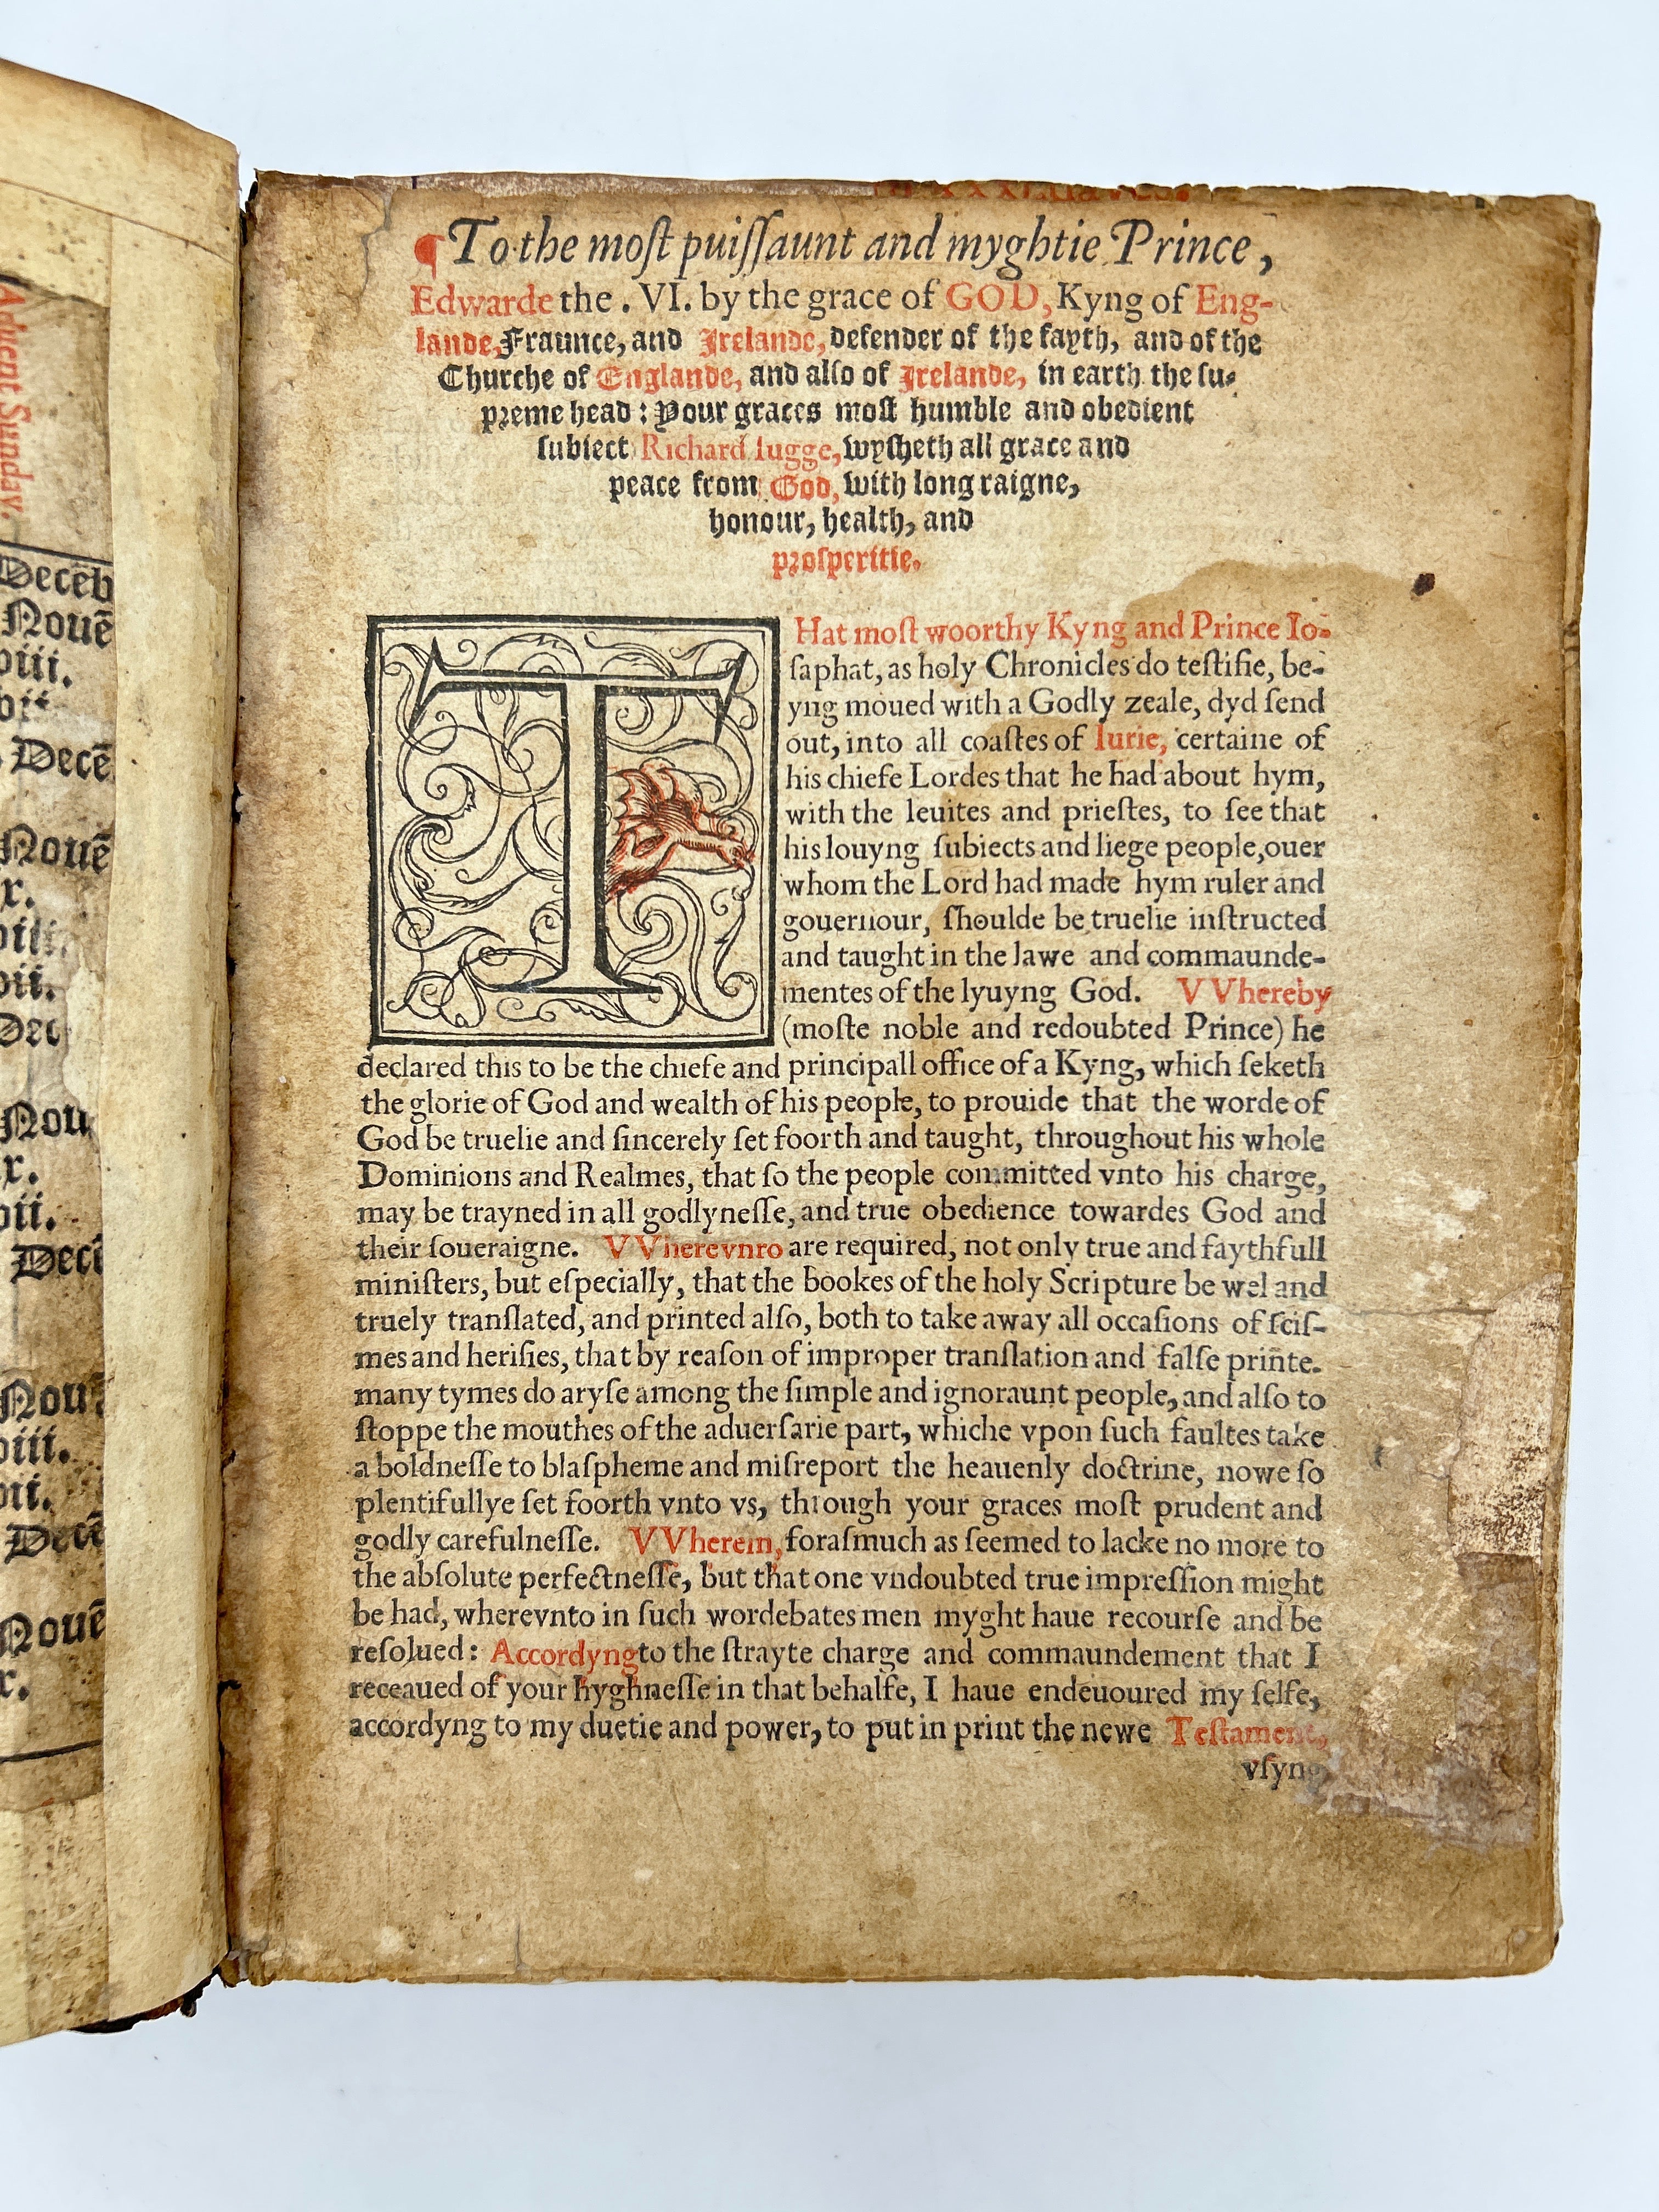 Aduent Sunday.
Decēb
Nouē
viii.
vii.
Decē
Nouē
x.
viii.
vii.
Dec
Nou
x.
vii.
Nou
viii.
vii.
Decē
Nouē
x.
¶To the moſt puiſſaunt and myghtie Prince,
Edwarde the . VI. by the grace of GOD, Kyng of Eng-
lande, Fraunce, and Irelande, defender of the fayth, and of the
Churche of Englande, and alſo of Irelande, in earth the ſu-
preme head : Your graces moſt humble and obedient
ſubiect Richard Iugge, wyſheth all grace and
peace from God, with long raigne,
honour, health, and
proſperitie.
THat moſt woorthy Kyng and Prince Io-
ſaphat, as holy Chronicles do teſtifie, be-
yng moued with a Godly zeale, dyd ſend
out, into all coaſtes of Iurie, certaine of
his chiefe Lordes that he had about hym,
with the leuites and prieſtes, to ſee that
his louyng ſubiects and liege people, ouer
whom the Lord had made hym ruler and
gouernour, ſhoulde be truelie inſtructed
and taught in the lawe and commaunde-
mentes of the lyuyng God. VVhereby
(moſte noble and redoubted Prince) he
declared this to be the chiefe and principall office of a Kyng, which ſeketh
the glorie of God and wealth of his people, to prouide that the worde of
God be truelie and ſincerely ſet foorth and taught, throughout his whole
Dominions and Realmes, that ſo the people committed vnto his charge,
may be trayned in all godlyneſſe, and true obedience towardes God and
their ſoueraigne. VVherevnro are required, not only true and faythfull
miniſters, but eſpecially, that the bookes of the holy Scripture be wel and
truely tranſlated, and printed alſo, both to take away all occaſions of ſciſ-
mes and heriſies, that by reaſon of improper tranſlation and falſe printe.
many tymes do aryſe among the ſimple and ignoraunt people, and alſo to
ſtoppe the mouthes of the aduerſarie part, whiche vpon ſuch faultes take
a boldneſſe to blaſpheme and miſreport the heauenly doctrine, nowe ſo
plentifullye ſet foorth vnto vs, through your graces moſt prudent and
godly carefulneſſe. VVherein, foraſmuch as ſeemed to lacke no more to
the abſolute perfectneſſe, but that one vndoubted true impreſſion might
be had, wherevnto in ſuch wordebates men myght haue recourſe and be
reſolued: Accordyng to the ſtrayte charge and commaundement that I
receaued of your hyghneſſe in that behalfe, I haue endeuoured my ſelfe,
accordyng to my duetie and power, to put in print the newe Teſtament,
vſyng